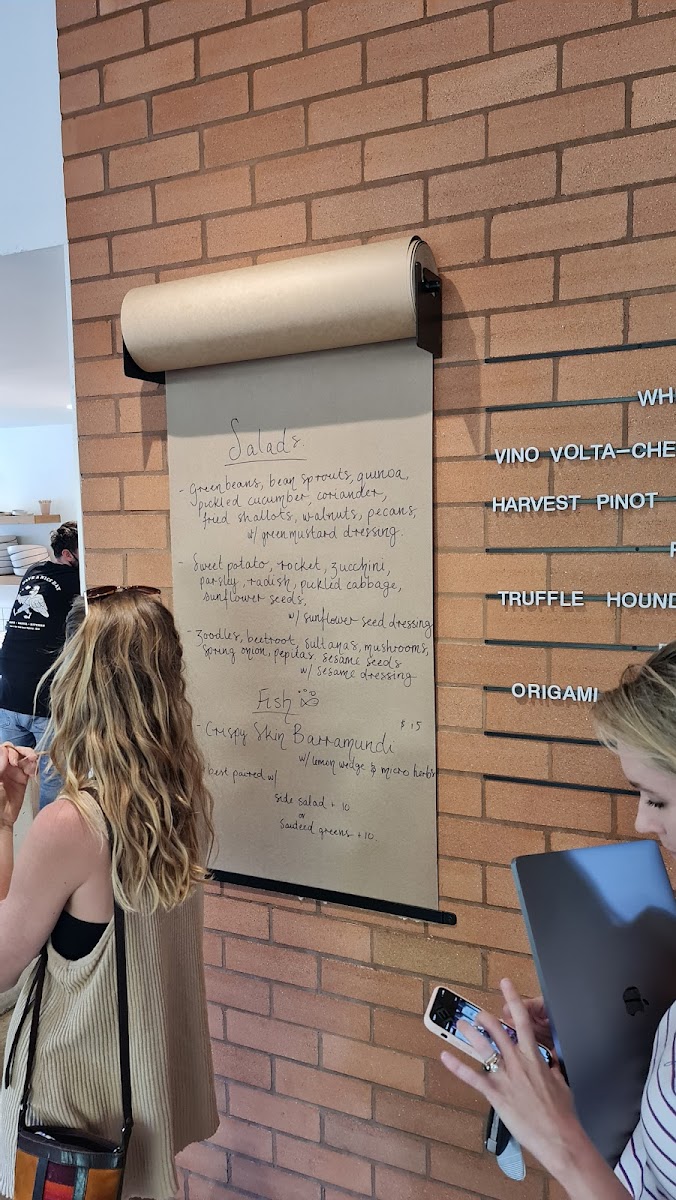 Salads
- Green beans, bean sprouts, quinoa,
pickled cucumber, coriander,
fried shallots, walnuts, pecans,
w/ green mustard dressing.
- Sweet potato, rocket, zucchini,
parsley, radish, pickled cabbage,
sunflower seeds,
w/ sunflower seed dressing
- Zoodles, beetroot, sultanas, mushrooms,
spring onion, pepitas, sesame seeds
w/ sesame dressing
Fish
- Crispy Skin Barramundi $15
w/ lemon wedge & micro herbs
best paired w/
side salad + 10
or
Sauteed greens + 10.
WH
VINO VOLTA-CHE
HARVEST PINOT
TRUFFLE HOUND
ORIGAMI